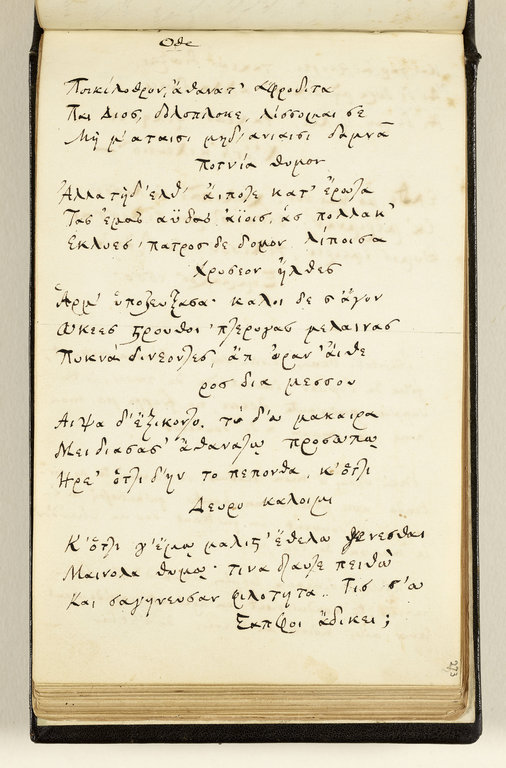 Ode
Ποικιλοθρον, ἀθανατ' αφροδιτα
Παι Διος, δολοπλοκε, λισσομαι σε
Μή μ' αταισι μηδ' ανιαισι δαμνα
ποτνία θυμον
Ἀλλα τηδ' ελθ' αἰποτε κατ' ἐρωτα
Τας ἐμας αὔδας ἀϊοις, ἁς πολλακ'
Εκλυες· πατρος δε δομον λίποισα
Χρυσεον ἠλθες
Ἀρμ' ὑποζευξασα· καλοι δε σ' ἀγον
Ωκεες στρουθοι· πτερυγας μελαινας
Πυκνα δινεοντες, ἀπ' ὠραν' αἰθε
ρος δια μεσσου
Αιψα δ' ἐξικοντο. τὺ δ' ω μακαιρα
Μειδιασασ' ἀθανατῳ προσωπῳ
Ηρε' ὅττι δ' ην το πεπονθα, κ' ὅττι
Δευρο καλοιμι
Κ' ὅττι γ' ἐμῳ μαλιστ' ἐθελω γενεσθαι
Μαινολα θυμῳ· τινα δ' αυτε πειθω
Και σαγηνευσαν φιλοτητα. Τις σ' ω
Σαπφοι ἀδικει;
273